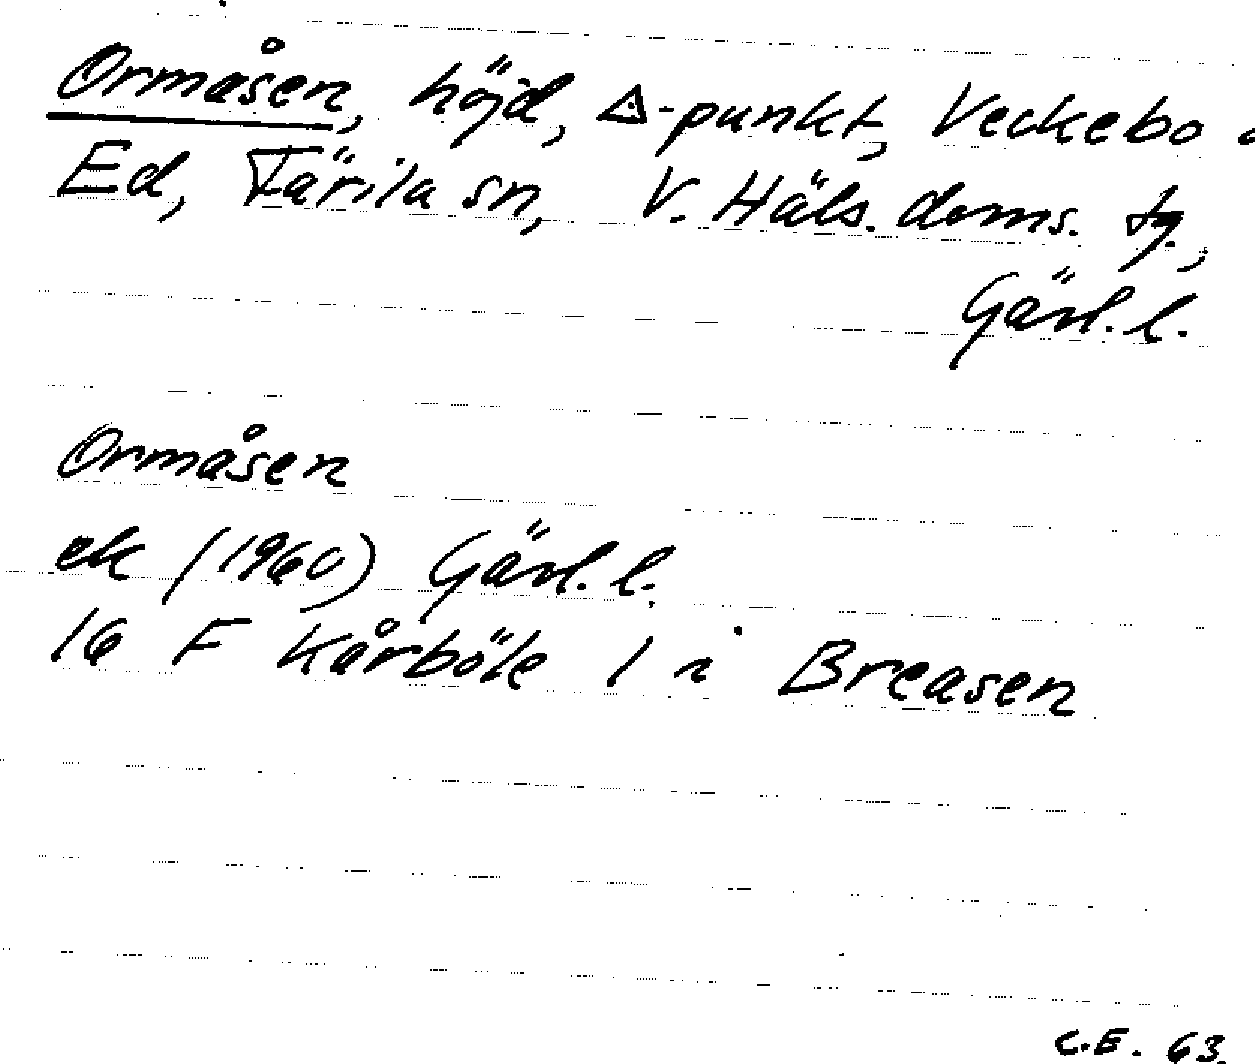 Ormåsen, höjd, △-punkt, Veckebo o
Ed, Färila sn, V. Häls. doms. tg.,
Gävl. l.
Ormåsen
ek (1960) Gävl. l.
16 F Kårböle 1 i Breasen
C.E. 63.